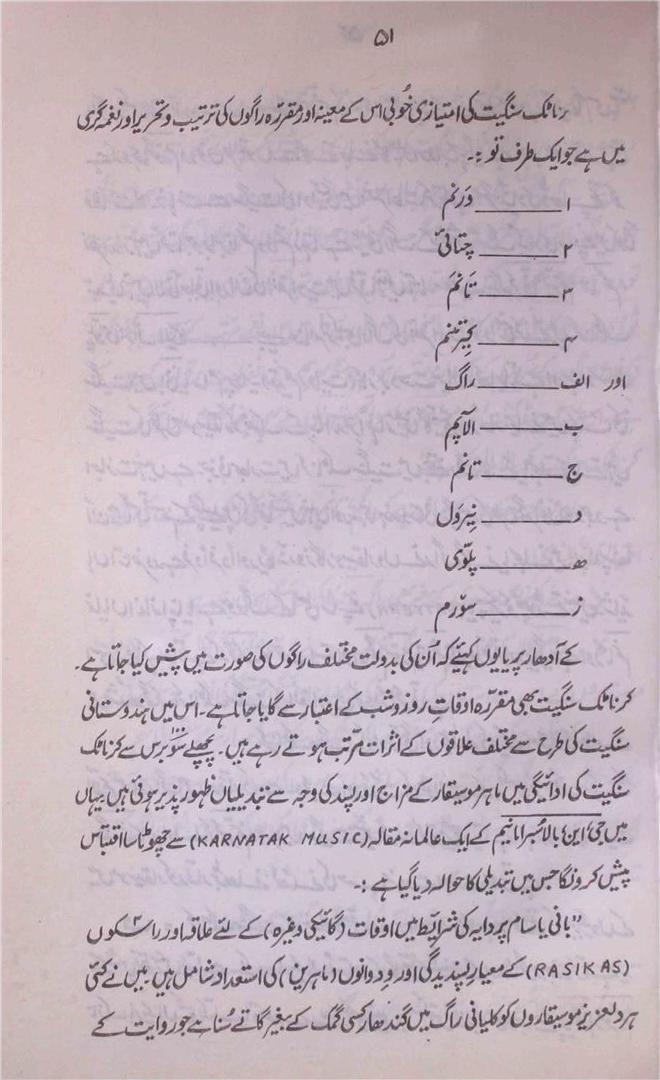 ۵۱
رناٹک سنگیت کی امتیازی خُوبی اس کے معینہ اور مقررّہ راگوں کی ترتیب و تحریر اور نغمہ گری
میں ہے جو ایک طرف تو :۔
۱ ــــــــــ وَرنم
۲ ــــــــــ چتائی
۳ ــــــــــ تَانَم
۴ ــــــــــ
اور الف ــــــــــ راگ
ب ــــــــــ الاَپَم
ج ــــــــــ تانم
د ــــــــــ نیروَل
ھ ــــــــــ پلوّی
ز ــــــــــ سوّرم
کے آدھار پر یا یوں کہیئے کہ اُن کی بدولت مختلف راگوں کی صورت میں پیش کیا جاتا ہے۔
کرناٹک سنگیت بھی مقررّہ اوقاتِ روز و شب کے اعتبار سے گایا جاتا ہے۔ اس میں ہندوستانی
سنگیت کی طرح سے مختلف علاقوں کے اثرات مرتّب ہوتے رہے ہیں۔ پچھلے سَو۱۰۰ برس سے کرناٹک
سنگیت کی ادائیگی میں ماہر موسیقار کے مزاج اور پسند کی وجہ سے تبدیلیاں ظہور پذیر ہوئی ہیں یہاں
میں جی ' این' بالا سُبرامانیم کے ایک عالمانہ مقالہ (KARNATAK MUSIC) سے چھوٹا سا اقتباس
پیش کرونگا جس میں تبدیلی کا حوالہ دیا گیا ہے :۔
"بانی یا سام پر دایہ کی شرائط میں اوقات (گائیکی وغیرہ) کے لئے علاقہ اور راسکوں
(RASIKAS) کے معیارِ پسندیدگی اور وِدوانوں (ماہرین) کی استعداد شامل ہیں۔ میں نے کئی
ہردلعزیز موسیقاروں کو کلیانی راگ میں گندھار کسی گمک کے بغیر گاتے سُنا ہے جو روایت کے